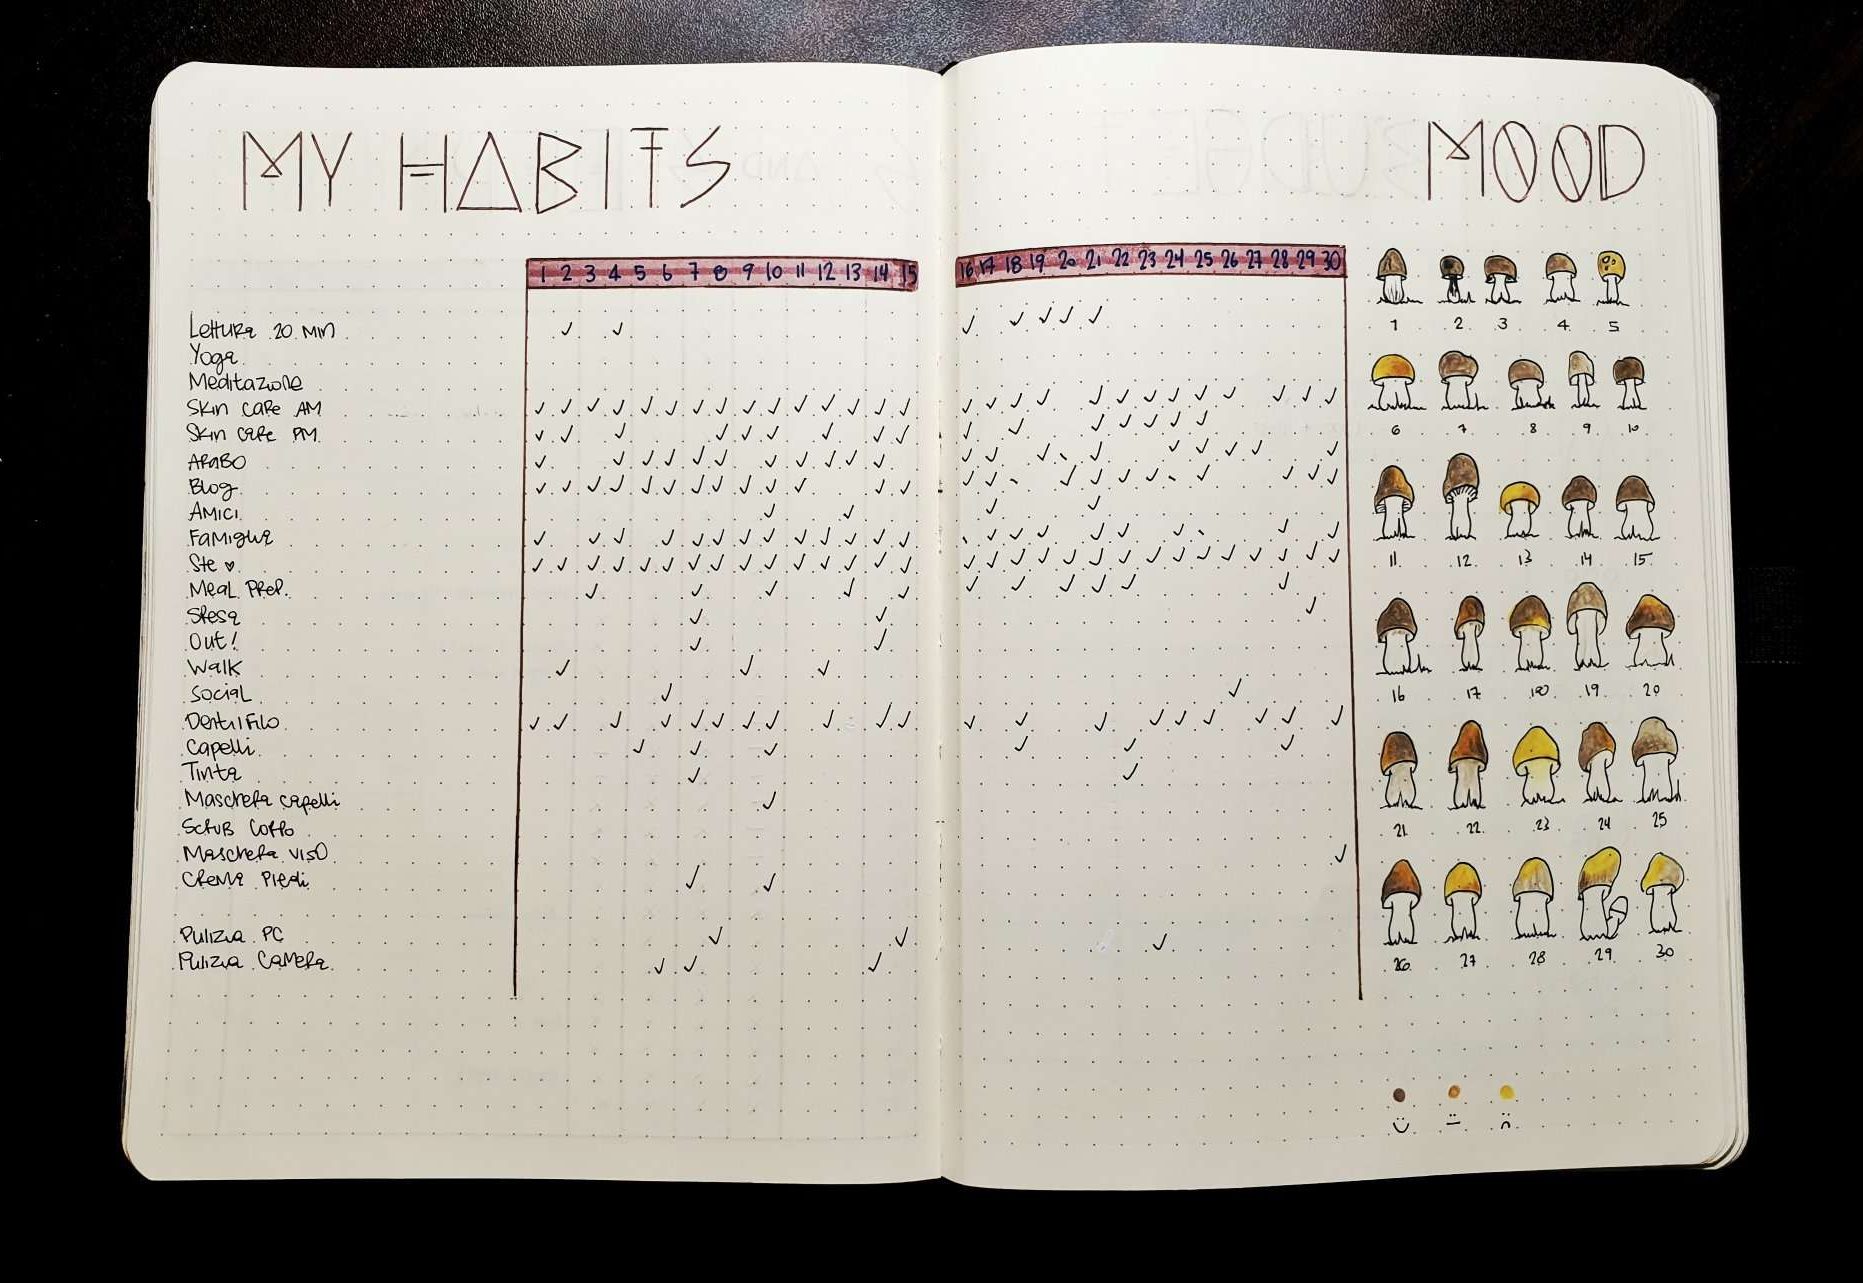 MY HABITS
MOOD
1 2 3 4 5 6 7 8 9 10 11 12 13 14 15 16 17 18 19 20 21 22 23 24 25 26 27 28 29 30
Lettura 20 min
Yoga
Meditazione
Skin care AM
Skin care PM
Arabo
Blog
Amici
Famiglia
Ste ♥
Meal Prep.
Spesa
Out!
Walk
Social
Denti/Filo
Capelli
Tinta
Maschera capelli
Scrub corpo
Maschera viso
Crema piedi
Pulizia PC
Pulizia camera
1 2 3 4 5
6 7 8 9 10
11 12 13 14 15
16 17 18 19 20
21 22 23 24 25
26 27 28 29 30